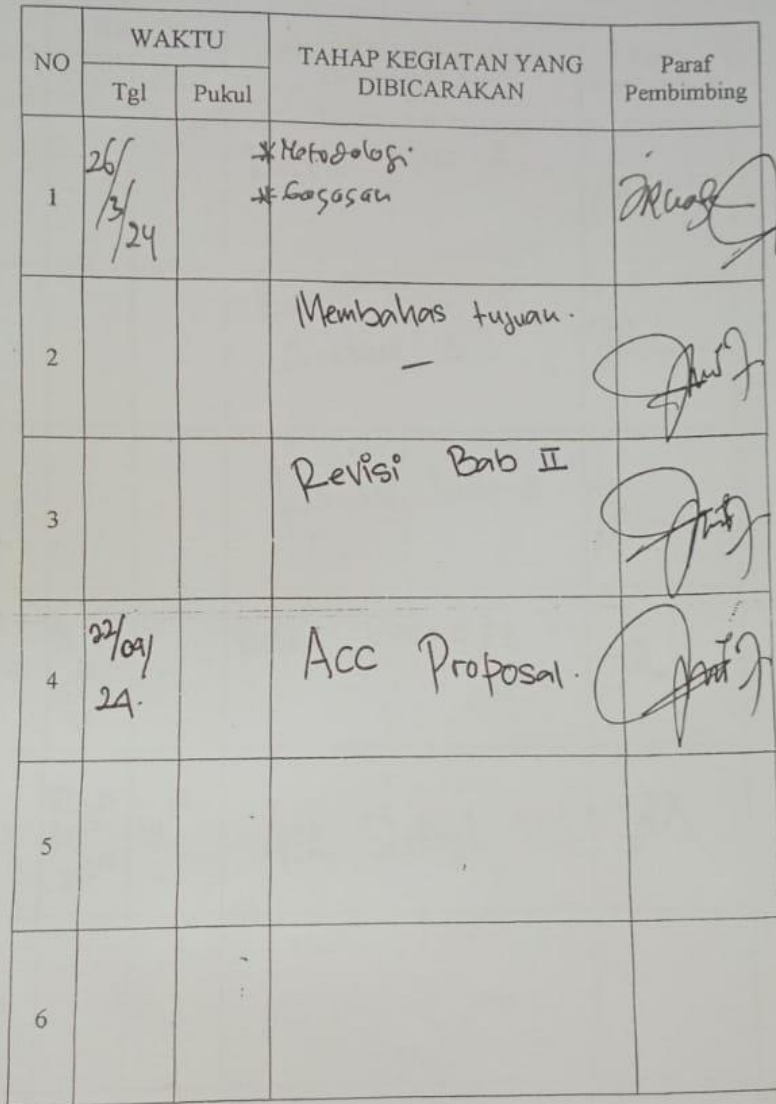 NO
WAKTU
TAHAP KEGIATAN YANG
DIBICARAKAN
Paraf
Pembimbing
Tgl
Pukul
1
26/
/3/
/24
* Metodologi
* Gagasan
2
Membahas tujuan.
—
3
Revisi Bab II
4
22/04/
24.
Acc Proposal.
5
6